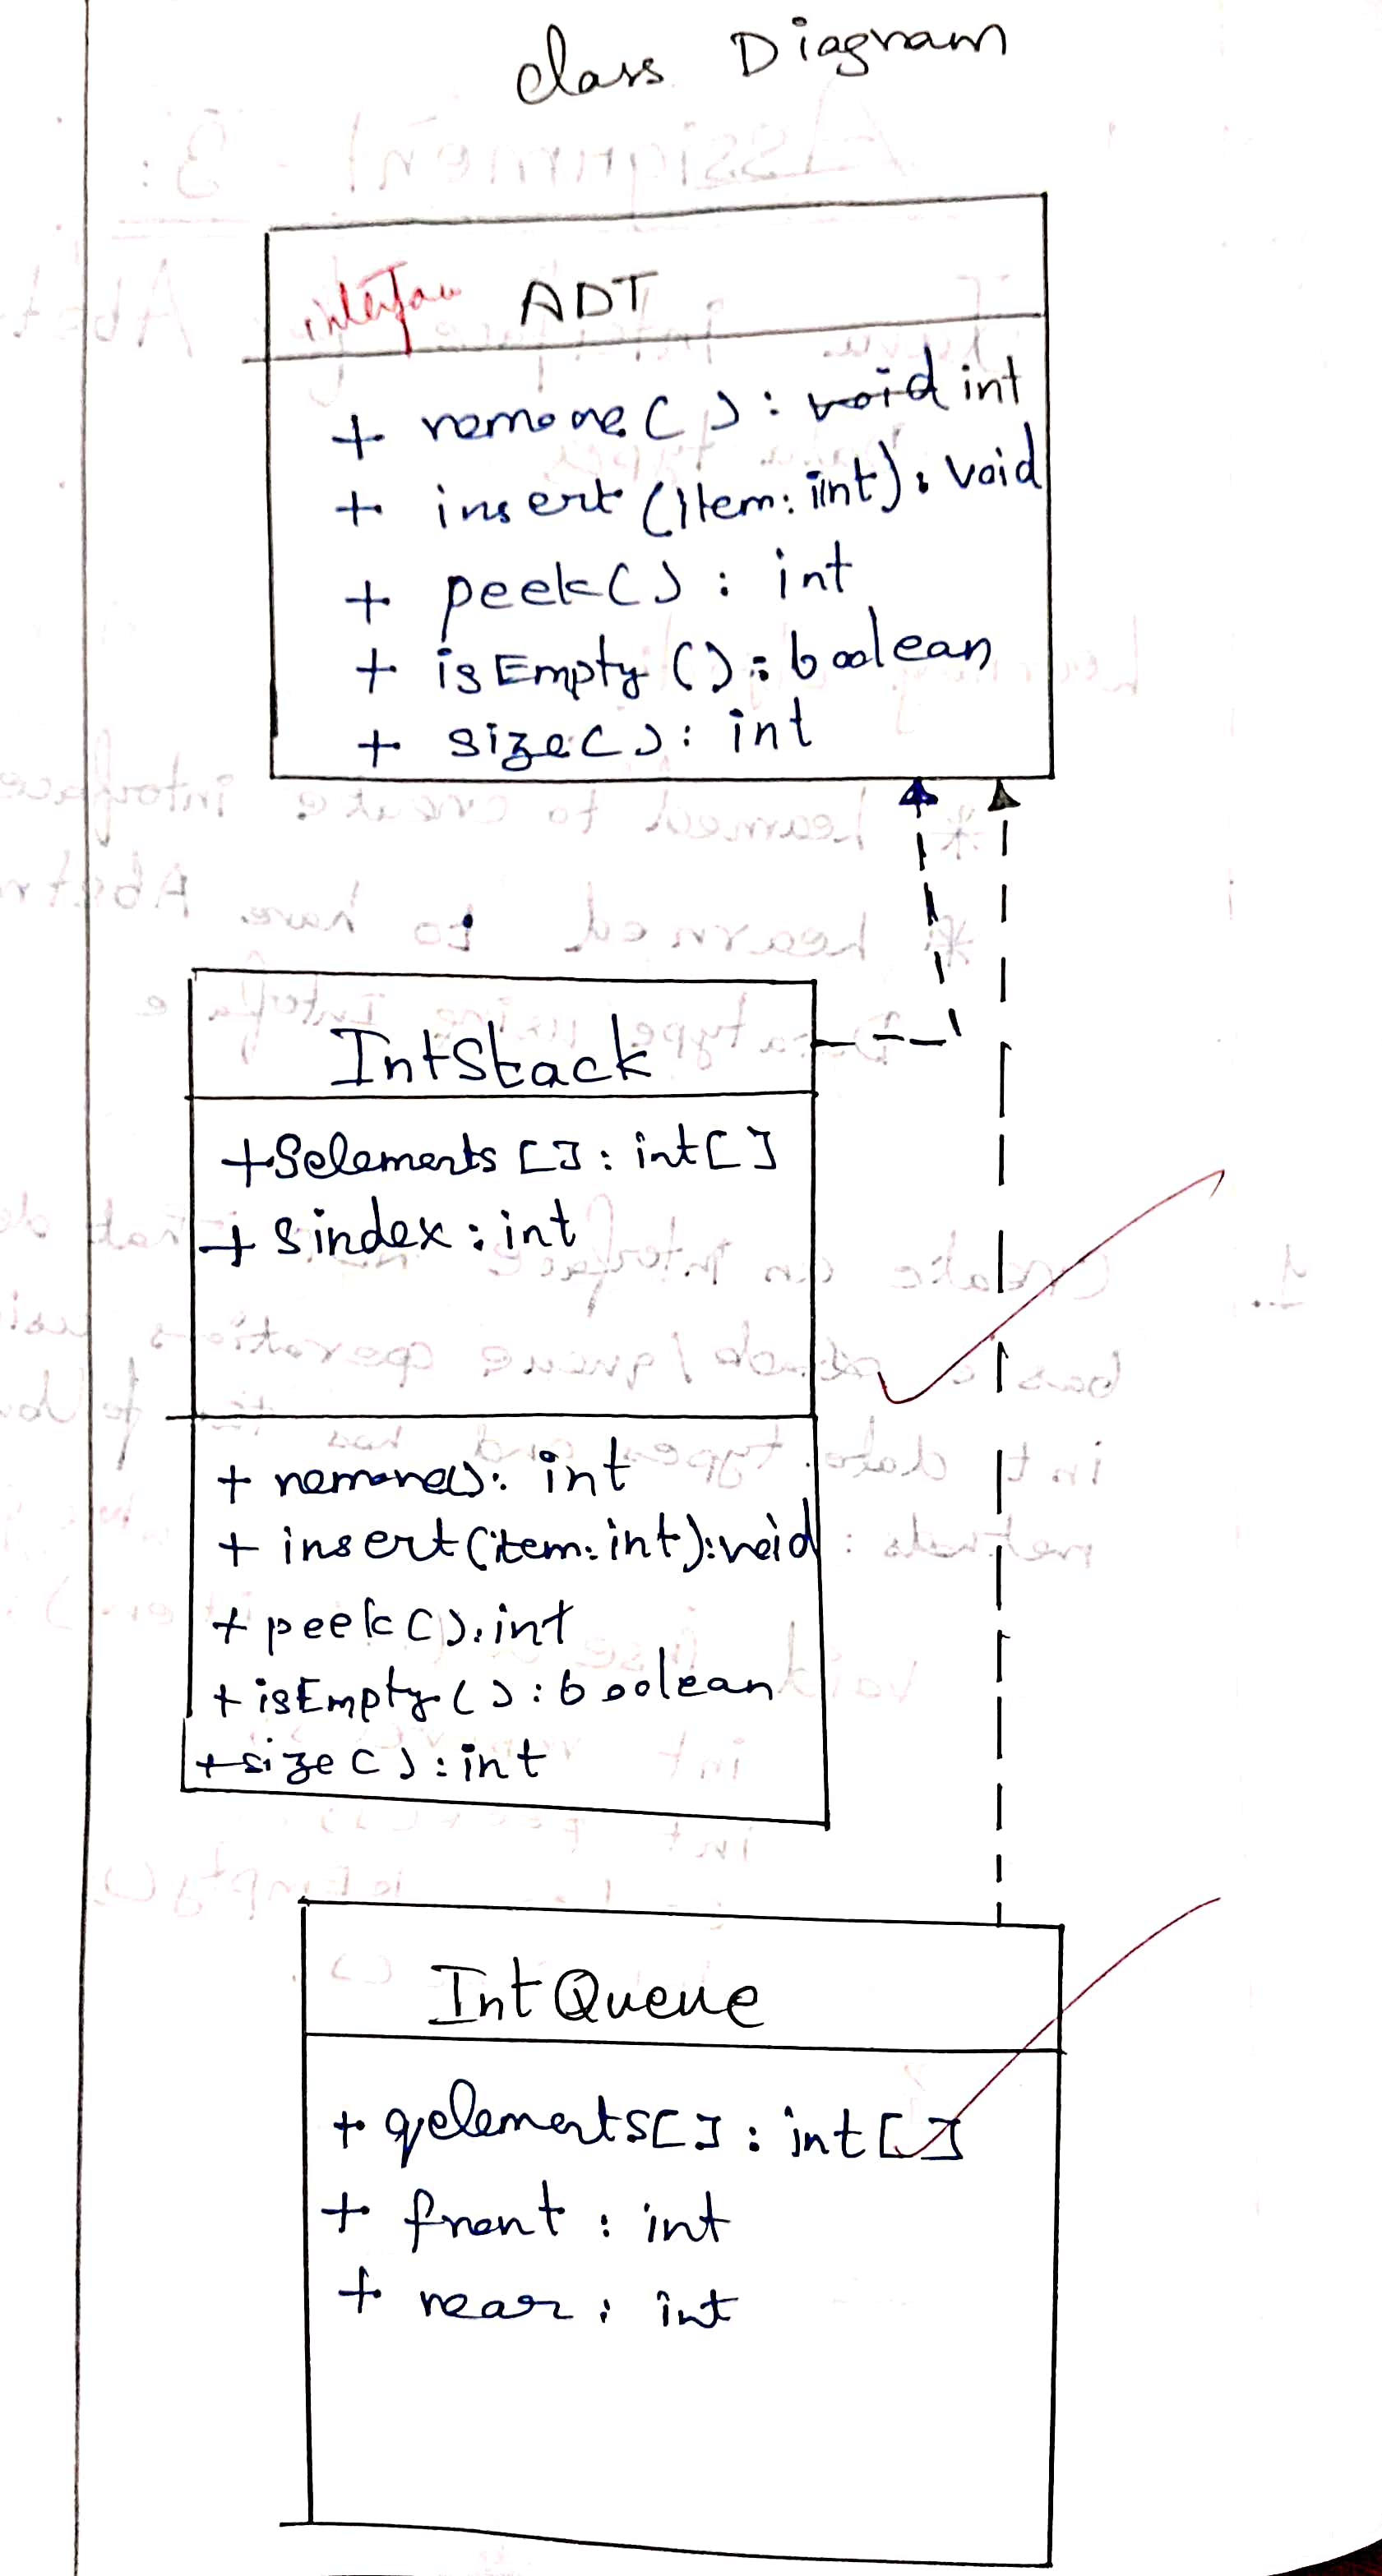 class Diagram
interface ADT
+ remove( ) : void int
+ insert (item: int) : void
+ peek( ) : int
+ isEmpty ( ) : boolean
+ size( ) : int
IntStack
+ Selements [] : int[]
+ sindex : int
+ remove() : int
+ insert (item: int) : void
+ peek ( ) : int
+ isEmpty ( ) : boolean
+ size ( ) : int
Int Queue
+ qelements[] : int[]
+ front : int
+ rear : int